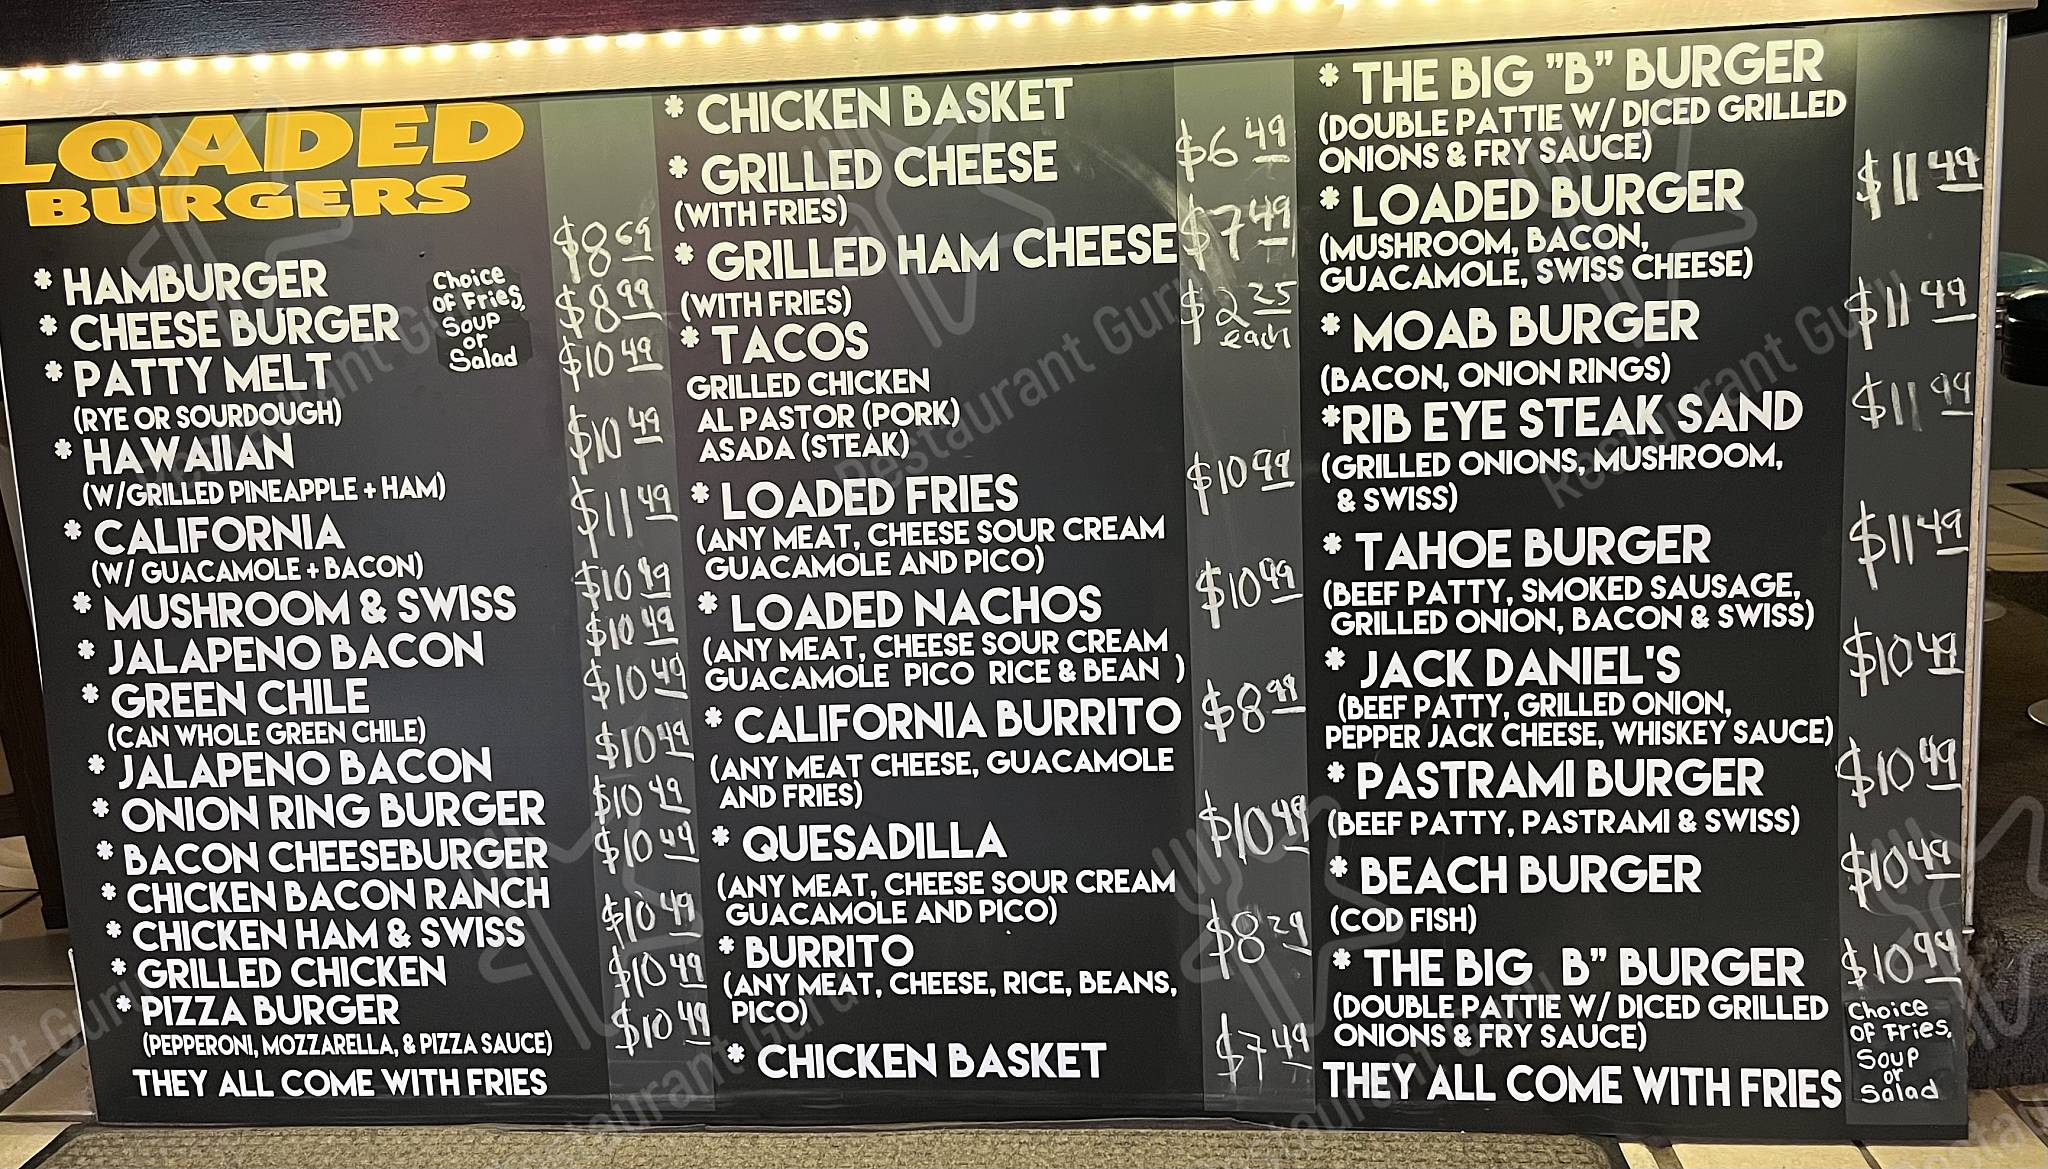 LOADED
BURGERS
* HAMBURGER
* CHEESE BURGER
* PATTY MELT
(RYE OR SOURDOUGH)
* HAWAIIAN
(W/GRILLED PINEAPPLE + HAM)
* CALIFORNIA
(W/ GUACAMOLE + BACON)
* MUSHROOM & SWISS
* JALAPENO BACON
* GREEN CHILE
(CAN WHOLE GREEN CHILE)
* JALAPENO BACON
* ONION RING BURGER
* BACON CHEESEBURGER
* CHICKEN BACON RANCH
* CHICKEN HAM & SWISS
* GRILLED CHICKEN
* PIZZA BURGER
(PEPPERONI, MOZZARELLA, & PIZZA SAUCE)
THEY ALL COME WITH FRIES
Choice
OF Fries,
Soup
or
Salad
$8 69
$8 99
$10 49
$10 49
$11 49
$10 49
$10 49
$10 49
$10 49
$10 49
$10 49
$10 49
$10 49
$10 49
* CHICKEN BASKET
* GRILLED CHEESE
(WITH FRIES)
* GRILLED HAM CHEESE
(WITH FRIES)
* TACOS
GRILLED CHICKEN
AL PASTOR (PORK)
ASADA (STEAK)
* LOADED FRIES
(ANY MEAT, CHEESE SOUR CREAM
GUACAMOLE AND PICO)
* LOADED NACHOS
(ANY MEAT, CHEESE SOUR CREAM
GUACAMOLE PICO RICE & BEAN )
* CALIFORNIA BURRITO
(ANY MEAT CHEESE, GUACAMOLE
AND FRIES)
* QUESADILLA
(ANY MEAT, CHEESE SOUR CREAM
GUACAMOLE AND PICO)
* BURRITO
(ANY MEAT, CHEESE, RICE, BEANS,
PICO)
* CHICKEN BASKET
$6 49
$7 49
$2 25
each
$10 99
$10 99
$8 99
$10 49
$8 29
$7 49
* THE BIG "B" BURGER
(DOUBLE PATTIE W/ DICED GRILLED
ONIONS & FRY SAUCE)
* LOADED BURGER
(MUSHROOM, BACON,
GUACAMOLE, SWISS CHEESE)
* MOAB BURGER
(BACON, ONION RINGS)
*RIB EYE STEAK SAND
(GRILLED ONIONS, MUSHROOM,
& SWISS)
* TAHOE BURGER
(BEEF PATTY, SMOKED SAUSAGE,
GRILLED ONION, BACON & SWISS)
* JACK DANIEL'S
(BEEF PATTY, GRILLED ONION,
PEPPER JACK CHEESE, WHISKEY SAUCE)
* PASTRAMI BURGER
(BEEF PATTY, PASTRAMI & SWISS)
* BEACH BURGER
(COD FISH)
* THE BIG B" BURGER
(DOUBLE PATTIE W/ DICED GRILLED
ONIONS & FRY SAUCE)
THEY ALL COME WITH FRIES
$11 49
$11 49
$11 99
$11 49
$10 49
$10 49
$10 49
$10 99
Choice
OF Fries,
Soup
or
Salad
Restaurant Guru
Restaurant Guru
Restaurant Guru